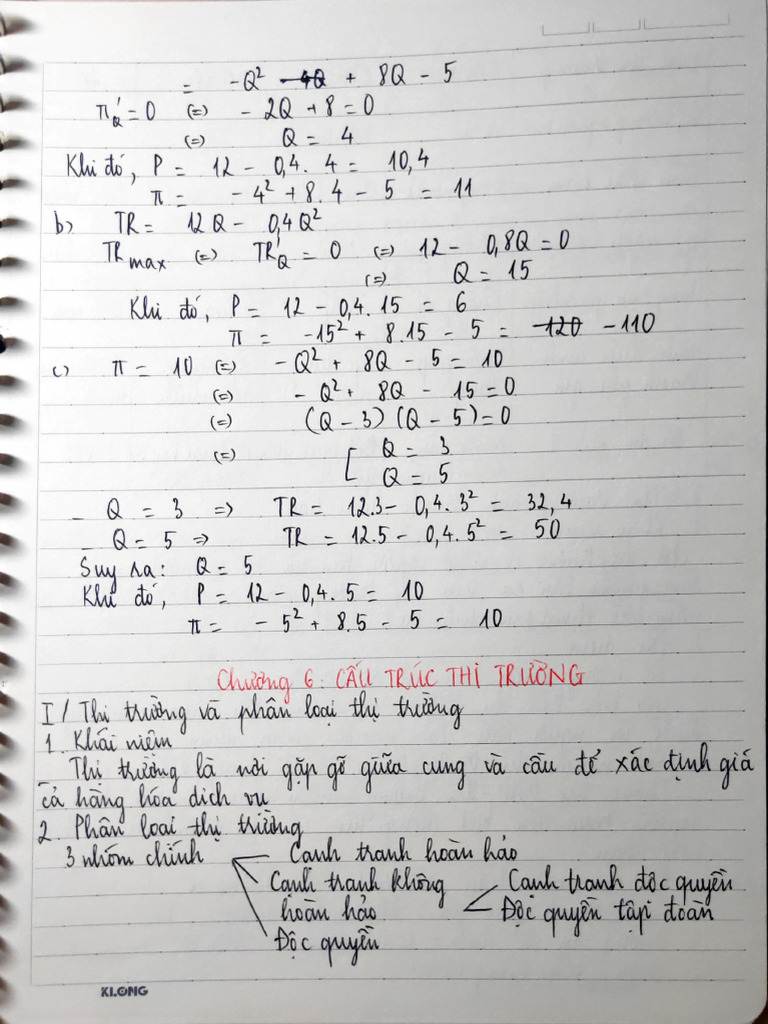 = -Q² -4Q + 8Q - 5
π'Q = 0 (=) - 2Q + 8 = 0
(=) Q = 4
Khi đó, P = 12 - 0,4. 4 = 10,4
π = - 4² + 8.4 - 5 = 11
b) TR = 12Q - 0,4Q²
TRmax (=) TR'Q = 0 (=) 12 - 0,8Q = 0
(=) Q = 15
Khi đó, P = 12 - 0,4.15 = 6
π = -15² + 8.15 - 5 = -120 -110
c) π = 10 (=) - Q² + 8Q - 5 = 10
(=) - Q² + 8Q - 15 = 0
(=) (Q - 3) (Q - 5) = 0
(=) [ Q = 3
Q = 5
- Q = 3 => TR = 12.3 - 0,4. 3² = 32,4
- Q = 5 => TR = 12.5 - 0,4. 5² = 50
Suy ra: Q = 5
Khi đó, P = 12 - 0,4. 5 = 10
π = - 5² + 8.5 - 5 = 10
Chương 6: CẤU TRÚC THỊ TRƯỜNG
I / Thị trường và phân loại thị trường
1. Khái niệm
Thị trường là nơi gặp gỡ giữa cung và cầu để xác định giá
cả hàng hóa dịch vụ
2. Phân loại thị trường
3 nhóm chính Cạnh tranh hoàn hảo
Cạnh tranh không Cạnh tranh độc quyền
hoàn hảo Độc quyền tập đoàn
Độc quyền
KLONG